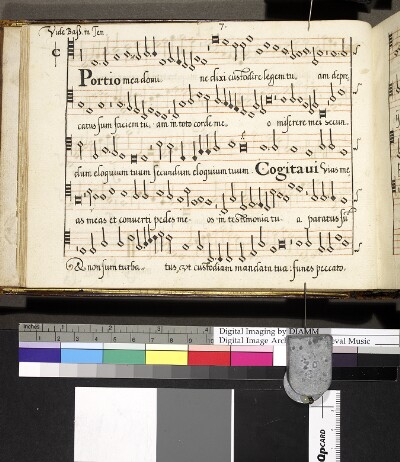 Vide Baß. in Ten
7.
Portio mea domi ne dixi custodire legem tu am depre
catus sum faciem tu am in toto corde me o miserere mei secun
dum eloquium tuum secundum eloquium tuum. Cogitaui vias me
as meas et conuerti pedes me os in testimonia tu a paratus su
& non sum turba tus, vt custodiam mandata tua: funes peccato
inches 1 2 3 4
Digital Imaging by DIAMM
Digital Image Archive Medieval Music
QPCARD